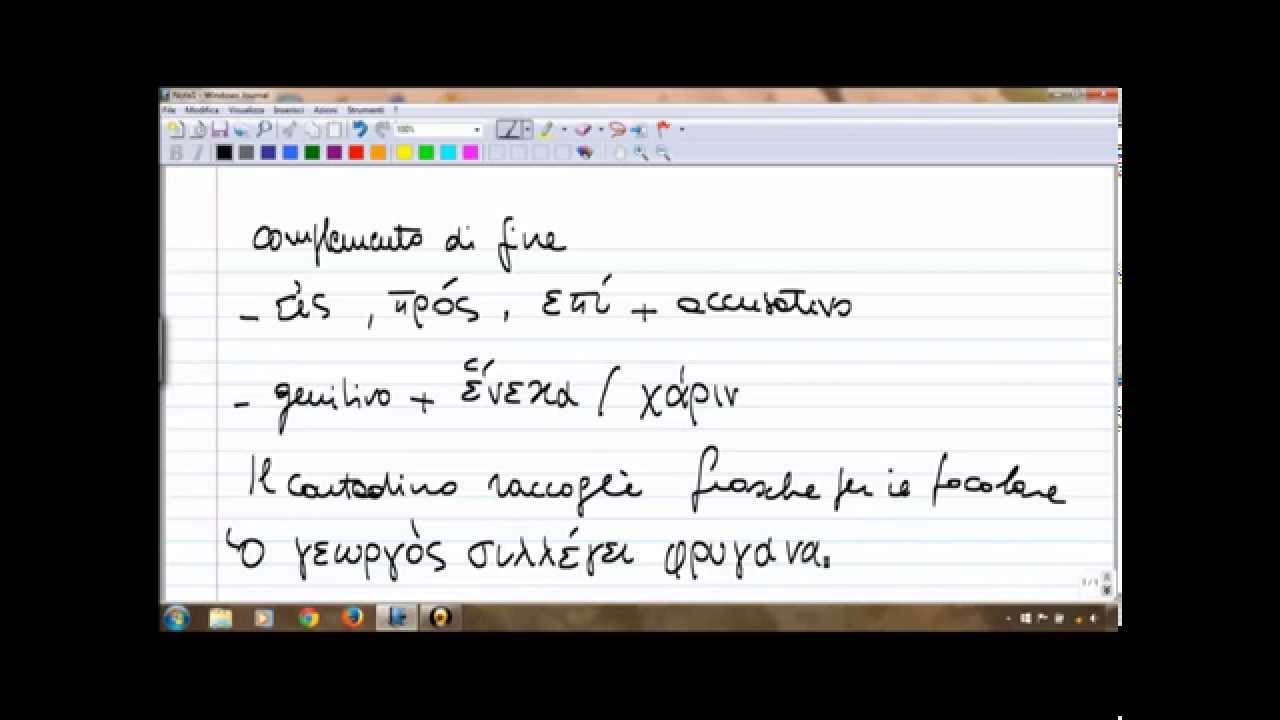 Note1 - Windows Journal
File Modifica Visualizza Inserisci Azioni Strumenti ?
100%
B I
complemento di fine
- εἰς, πρός, επί + accusativo
- genitivo + ἕνεκα / χάριν
Il contadino raccoglie frasche per il focolare
Ὁ γεωργὸς συλλέγει φρυγανα.
1/1